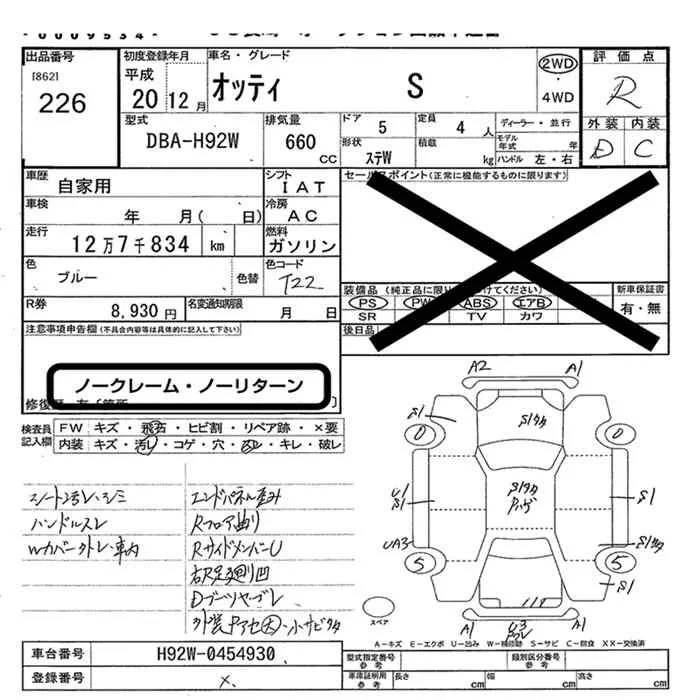 出品番号
[862]
226
初度登録年月
平成
20 12月
車名・グレード
オッティ S
2WD
・
4WD
評価点
R
外装 内装
D C
型式
DBA-H92W
排気量
660
CC
ドア
5
定員
4 人
形状
ステW
積載
kg
ディーラー・並行
モデル
年式 年
ハンドル 左・右
車歴
自家用
シフト
IAT
車検
年 月( 日)
冷房
AC
走行
12万7千834 km
燃料
ガソリン
色
ブルー
色替
色コード
T22
R券
8,930円
名変通知期限
月 日
セールスポイント(正常に機能するものに限ります)
装備品
PS PW ABS エアB
SR TV カワ
新車保証書
有・無
後日品
注意事項申告欄(不具合内容等は具体的に記入して下さい)
ノークレーム・ノーリターン
検査員
記入欄
FW キズ・飛石・ヒビ割・リペア跡・×要
内装 キズ・汚レ・コゲ・穴・スレ・キレ・破レ
シート汚レ・シミ
ハンドルスレ
Wカバー外レ・車内
エンドパネル歪み
Rフロア曲り
RサイドメンバーU
Dブーツヤブレ
A2 A1
S1
S1
S1
UA3
S1
A1 U3 A1
スペア
A−キズ E−エクボ U−凹み W−補修跡 S−サビ C−腐食 XX−交換済
車台番号 H92W-0454930
登録番号 ×
型式指定番号
参考
類別区分番号
参考
車庫証明用
参考
長さ cm 幅 cm 高さ cm